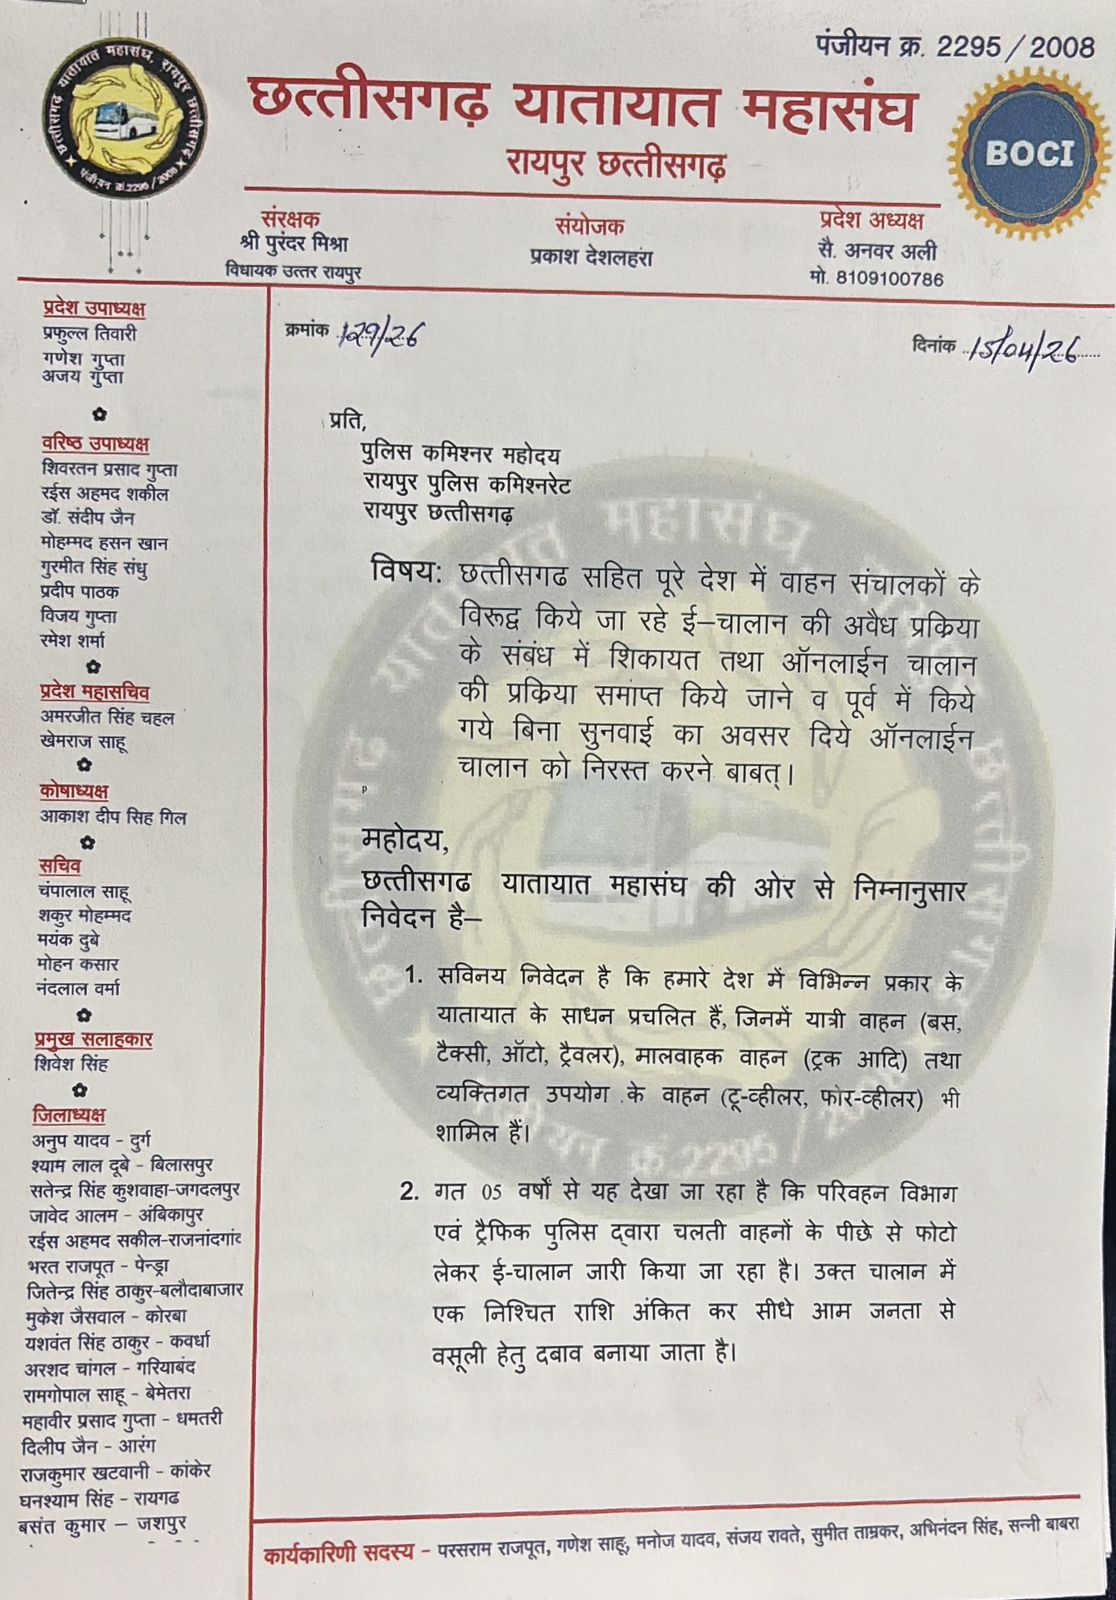 पंजीयन क्र. 2295 / 2008
छत्तीसगढ़ यातायात महासंघ, रायपुर छत्तीसगढ़
पंजीयन क्रं.2295 / 2008
छत्तीसगढ़ यातायात महासंघ
रायपुर छत्तीसगढ़
BOCI
संरक्षक
श्री पुरंदर मिश्रा
विधायक उत्तर रायपुर
संयोजक
प्रकाश देशलहरा
प्रदेश अध्यक्ष
सै. अनवर अली
मो. 8109100786
प्रदेश उपाध्यक्ष
प्रफुल्ल तिवारी
गणेश गुप्ता
अजय गुप्ता
वरिष्ठ उपाध्यक्ष
शिवरतन प्रसाद गुप्ता
रईस अहमद शकील
डॉ. संदीप जैन
मोहम्मद हसन खान
गुरमीत सिंह संधु
प्रदीप पाठक
विजय गुप्ता
रमेश शर्मा
प्रदेश महासचिव
अमरजीत सिंह चहल
खेमराज साहू
कोषाध्यक्ष
आकाश दीप सिह गिल
सचिव
चंपालाल साहू
शकुर मोहम्मद
मयंक दुबे
मोहन कसार
नंदलाल वर्मा
प्रमुख सलाहकार
शिवेश सिंह
जिलाध्यक्ष
अनुप यादव - दुर्ग
श्याम लाल दूबे - बिलासपुर
सतेन्द्र सिंह कुशवाहा-जगदलपुर
जावेद आलम - अंबिकापुर
रईस अहमद सकील-राजनांदगांव
भरत राजपूत - पेन्ड्रा
जितेन्द्र सिंह ठाकुर-बलौदाबाजार
मुकेश जैसवाल - कोरबा
यशवंत सिंह ठाकुर - कवर्धा
अरशद चांगल - गरियाबंद
रामगोपाल साहू - बेमेतरा
महावीर प्रसाद गुप्ता - धमतरी
दिलीप जैन - आरंग
राजकुमार खटवानी - कांकेर
घनश्याम सिंह - रायगढ
बसंत कुमार – जशपुर
क्रमांक 129/26
दिनांक 15/04/26
प्रति,
पुलिस कमिश्नर महोदय
रायपुर पुलिस कमिश्नरेट
रायपुर छत्तीसगढ़
विषय: छत्तीसगढ सहित पूरे देश में वाहन संचालकों के
विरूद्व किये जा रहे ई–चालान की अवैध प्रक्रिया
के संबंध में शिकायत तथा ऑनलाईन चालान
की प्रक्रिया समाप्त किये जाने व पूर्व में किये
गये बिना सुनवाई का अवसर दिये ऑनलाईन
चालान को निरस्त करने बाबत्।
P
महोदय,
छत्तीसगढ यातायात महासंघ की ओर से निम्नानुसार
निवेदन है–
1. सविनय निवेदन है कि हमारे देश में विभिन्न प्रकार के
यातायात के साधन प्रचलित हैं, जिनमें यात्री वाहन (बस,
टैक्सी, ऑटो, ट्रैवलर), मालवाहक वाहन (ट्रक आदि) तथा
व्यक्तिगत उपयोग के वाहन (टू-व्हीलर, फोर-व्हीलर) भी
शामिल हैं।
2. गत 05 वर्षों से यह देखा जा रहा है कि परिवहन विभाग
एवं ट्रैफिक पुलिस द्वारा चलती वाहनों के पीछे से फोटो
लेकर ई-चालान जारी किया जा रहा है। उक्त चालान में
एक निश्चित राशि अंकित कर सीधे आम जनता से
वसूली हेतु दबाव बनाया जाता है।
कार्यकारिणी सदस्य – परसराम राजपूत, गणेश साहू, मनोज यादव, संजय रावते, सुमीत ताम्रकर, अभिनंदन सिंह, सन्नी बाबरा